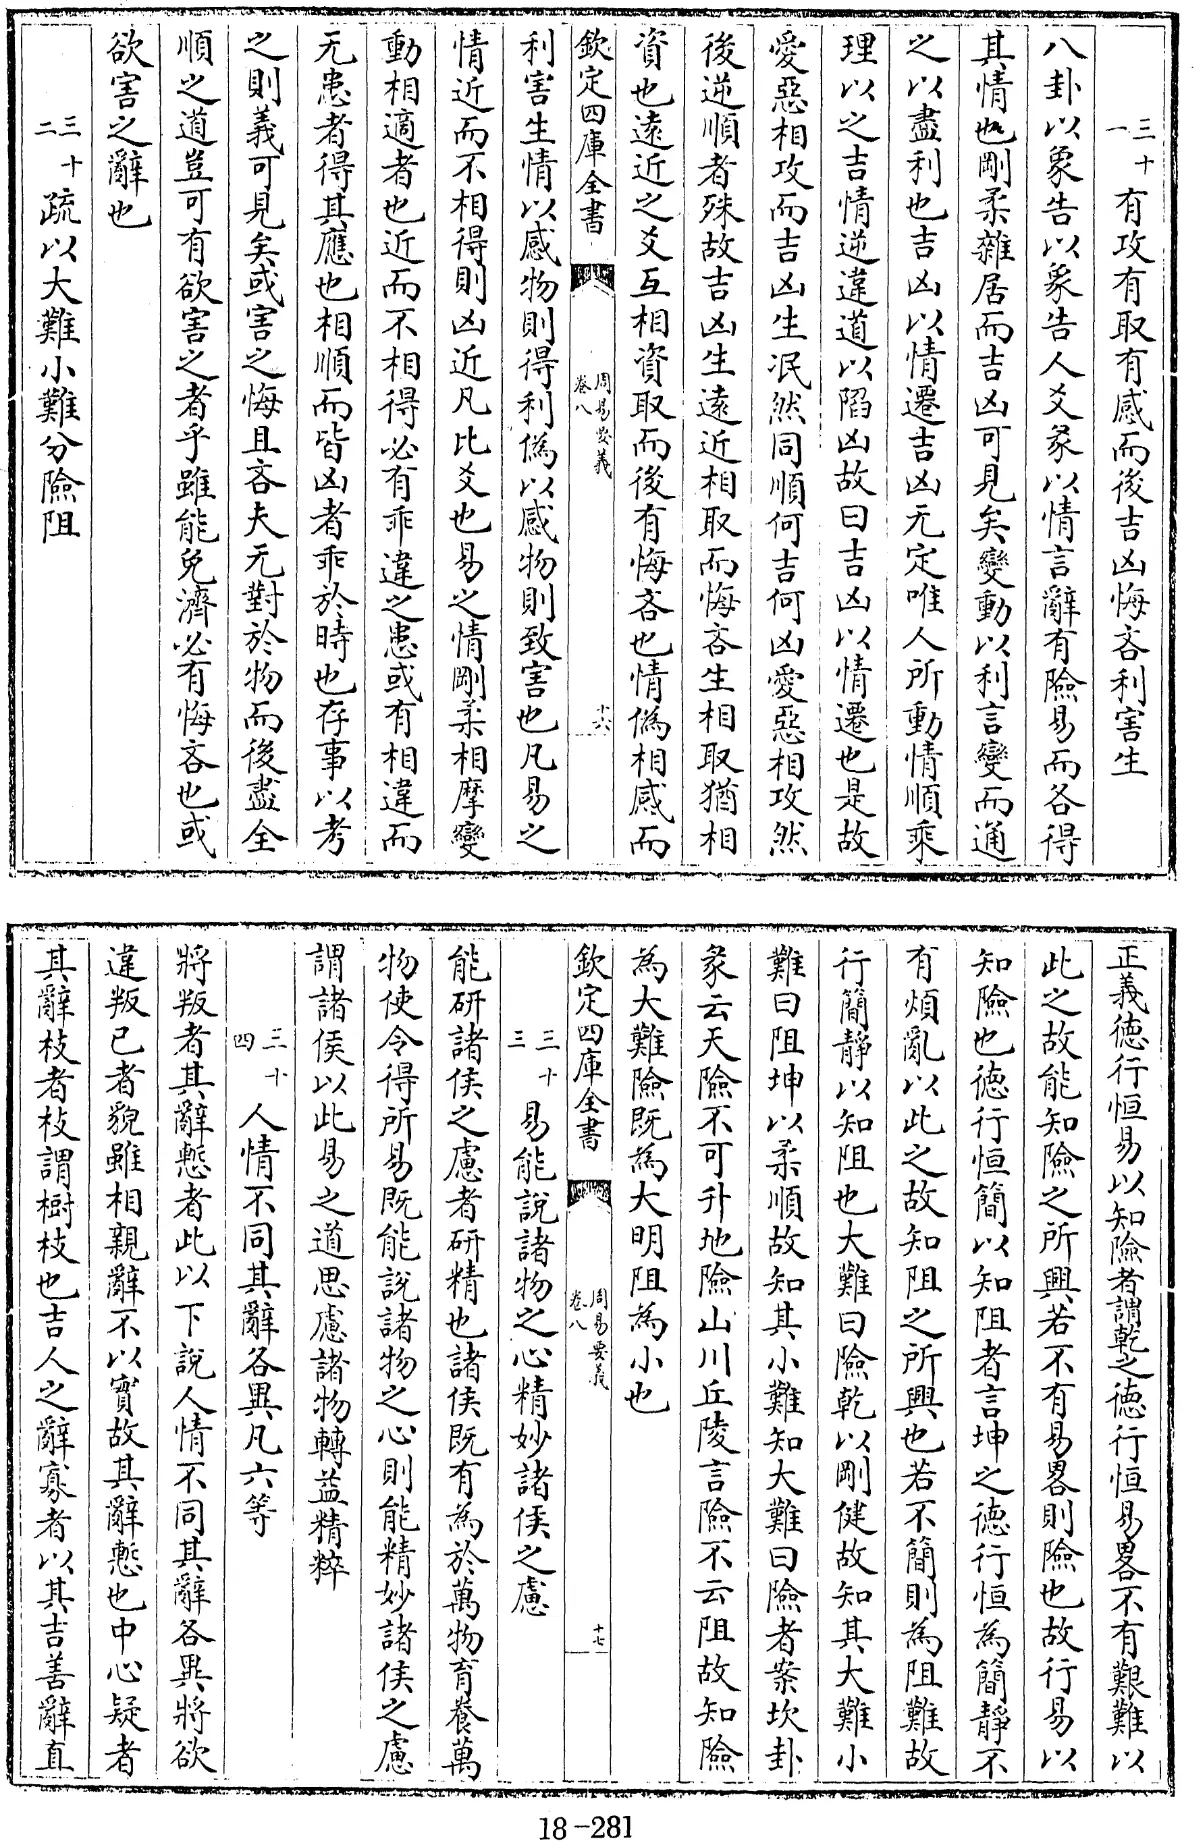 三十一 有攻有取有感而後吉凶悔吝利害生
八卦以象告以象告人爻彖以情言辭有險易而各得
其情也剛柔雜居而吉凶可見矣變動以利言變而通
之以盡利也吉凶以情遷吉凶无定唯人所動情順乘
理以之吉情逆違道以陷凶故曰吉凶以情遷也是故
愛惡相攻而吉凶生泯然同順何吉何凶愛惡相攻然
後逆順者殊故吉凶生遠近相取而悔吝生相取猶相
資也遠近之爻互相資取而後有悔吝也情偽相感而
欽定四庫全書 周易要義 卷八 十六
利害生情以感物則得利偽以感物則致害也凡易之
情近而不相得則凶近凡比爻也易之情剛柔相摩變
動相適者也近而不相得必有乖違之患或有相違而
无患者得其應也相順而皆凶者乖於時也存事以考
之則義可見矣或害之悔且吝夫无對於物而後盡全
順之道豈可有欲害之者乎雖能免濟必有悔吝也或
欲害之辭也
三十二 疏以大難小難分險阻
正義德行恒易以知險者謂乾之德行恒易畧不有艱難以
此之故能知險之所興若不有易畧則險也故行易以
知險也德行恒簡以知阻者言坤之德行恒為簡靜不
有煩亂以此之故知阻之所興也若不簡則為阻難故
行簡靜以知阻也大難曰險乾以剛健故知其大難小
難曰阻坤以柔順故知其小難知大難曰險者案坎卦
彖云天險不可升地險山川丘陵言險不云阻故知險
為大難險既為大明阻為小也
欽定四庫全書 周易要義 卷八 十七
三十三 易能說諸物之心精妙諸侯之慮
能研諸侯之慮者研精也諸侯既有為於萬物育養萬
物使令得所易既能說諸物之心則能精妙諸侯之慮
謂諸侯以此易之道思慮諸物轉益精粹
三十四 人情不同其辭各異凡六等
將叛者其辭慙者此以下說人情不同其辭各異將欲
違叛已者貌雖相親辭不以實故其辭慙也中心疑者
其辭枝者枝謂樹枝也吉人之辭寡者以其吉善辭直
18-281